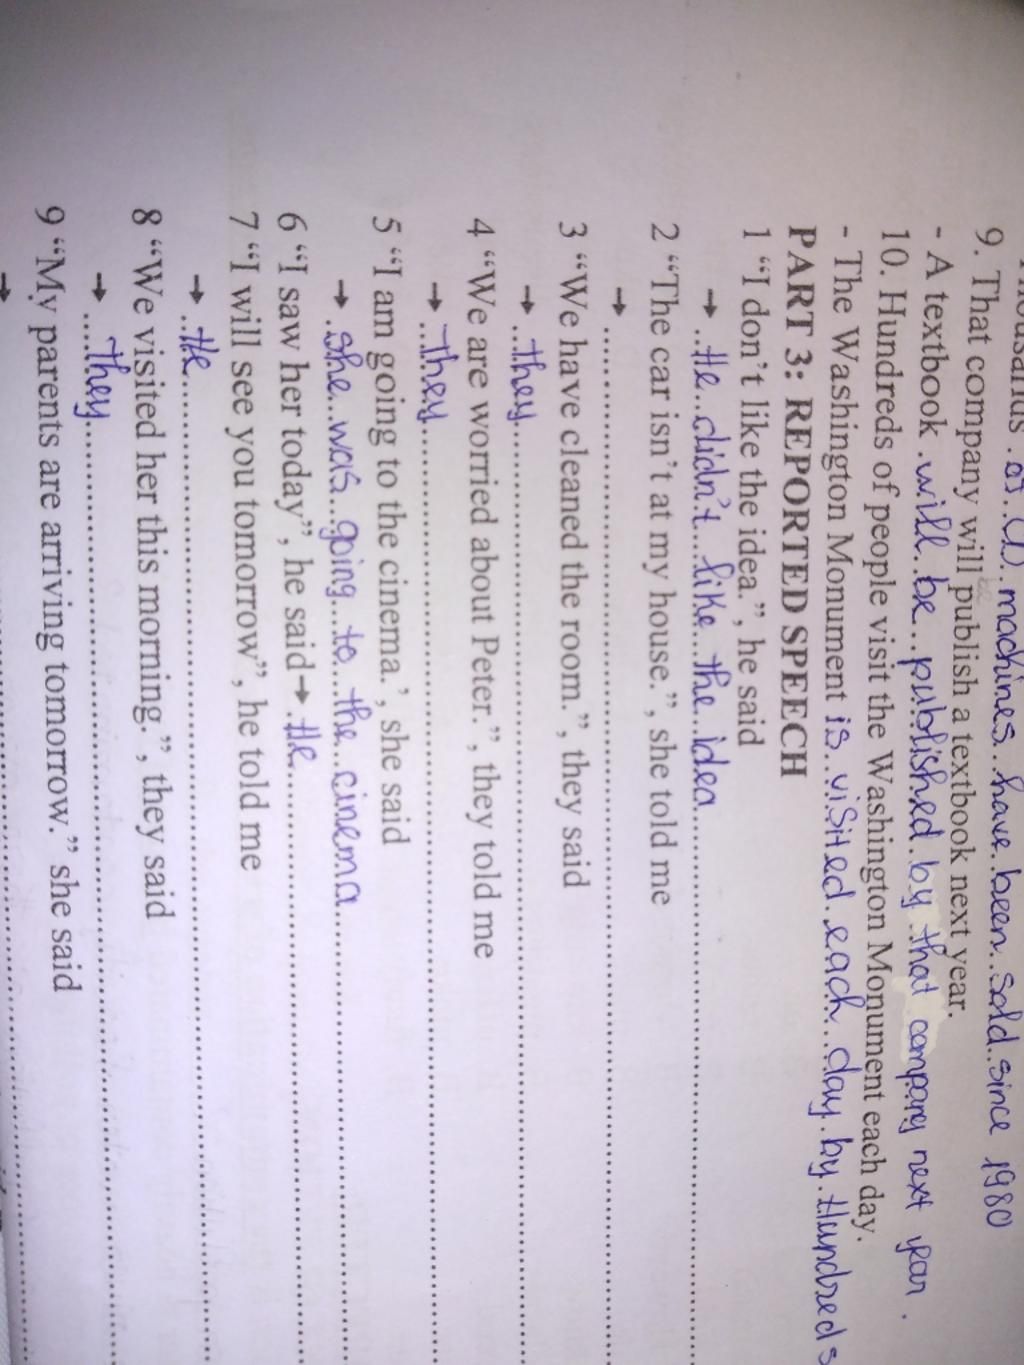 .of..U..machines..have.been..sold.since 1980
9. That company will publish a textbook next year.
- A textbook .will..be..published.by.that company next year.
10. Hundreds of people visit the Washington Monument each day.
- The Washington Monument is..visited.each..day.by.Hundreds
PART 3: REPORTED SPEECH
1 “I don’t like the idea.”, he said
➔ ..He..didn't..like..the..idea..........
2 “The car isn’t at my house.”, she told me
➔ ..........
3 “We have cleaned the room.”, they said
➔ ..they..........
4 “We are worried about Peter.”, they told me
➔ ..they..........
5 “I am going to the cinema.’, she said
➔ .she..was..going..to..the..cinema..........
6 “I saw her today”, he said➔ .He..........
7 “I will see you tomorrow”, he told me
➔ ..He..........
8 “We visited her this morning.”, they said
➔ ....they..........
9 “My parents are arriving tomorrow.” she said
➔ ..........